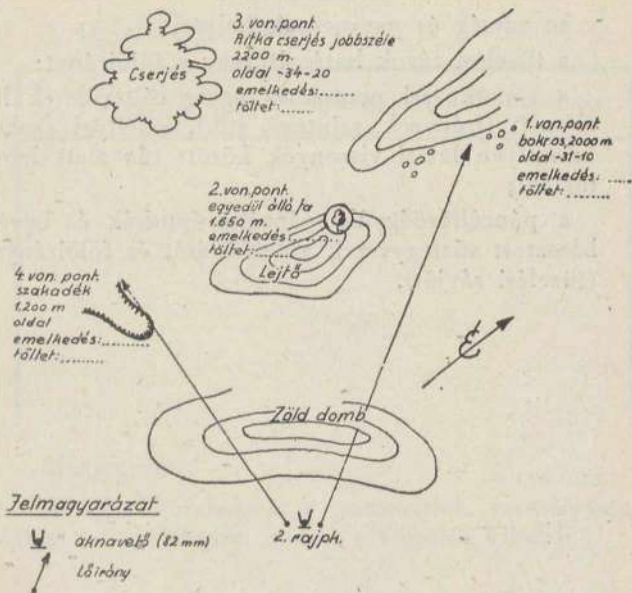 3. von. pont.
Ritka cserjés jobbszéle
2200 m.
oldal -34-20
emelkedés:......
töltet:......
Cserjés
1. von. pont.
bokros, 2000 m
oldal -31-10
emelkedés:......
töltet:......
2. von. pont.
egyedül álló fa
1.650 m.
emelkedés:......
töltet:......
Lejtő
4. von. pont.
szakadék
1.200 m
oldal
emelkedés:......
töltet:......
Zöld domb
2. rajpk.
Jelmagyarázat
aknavető (82 mm)
Lőirány